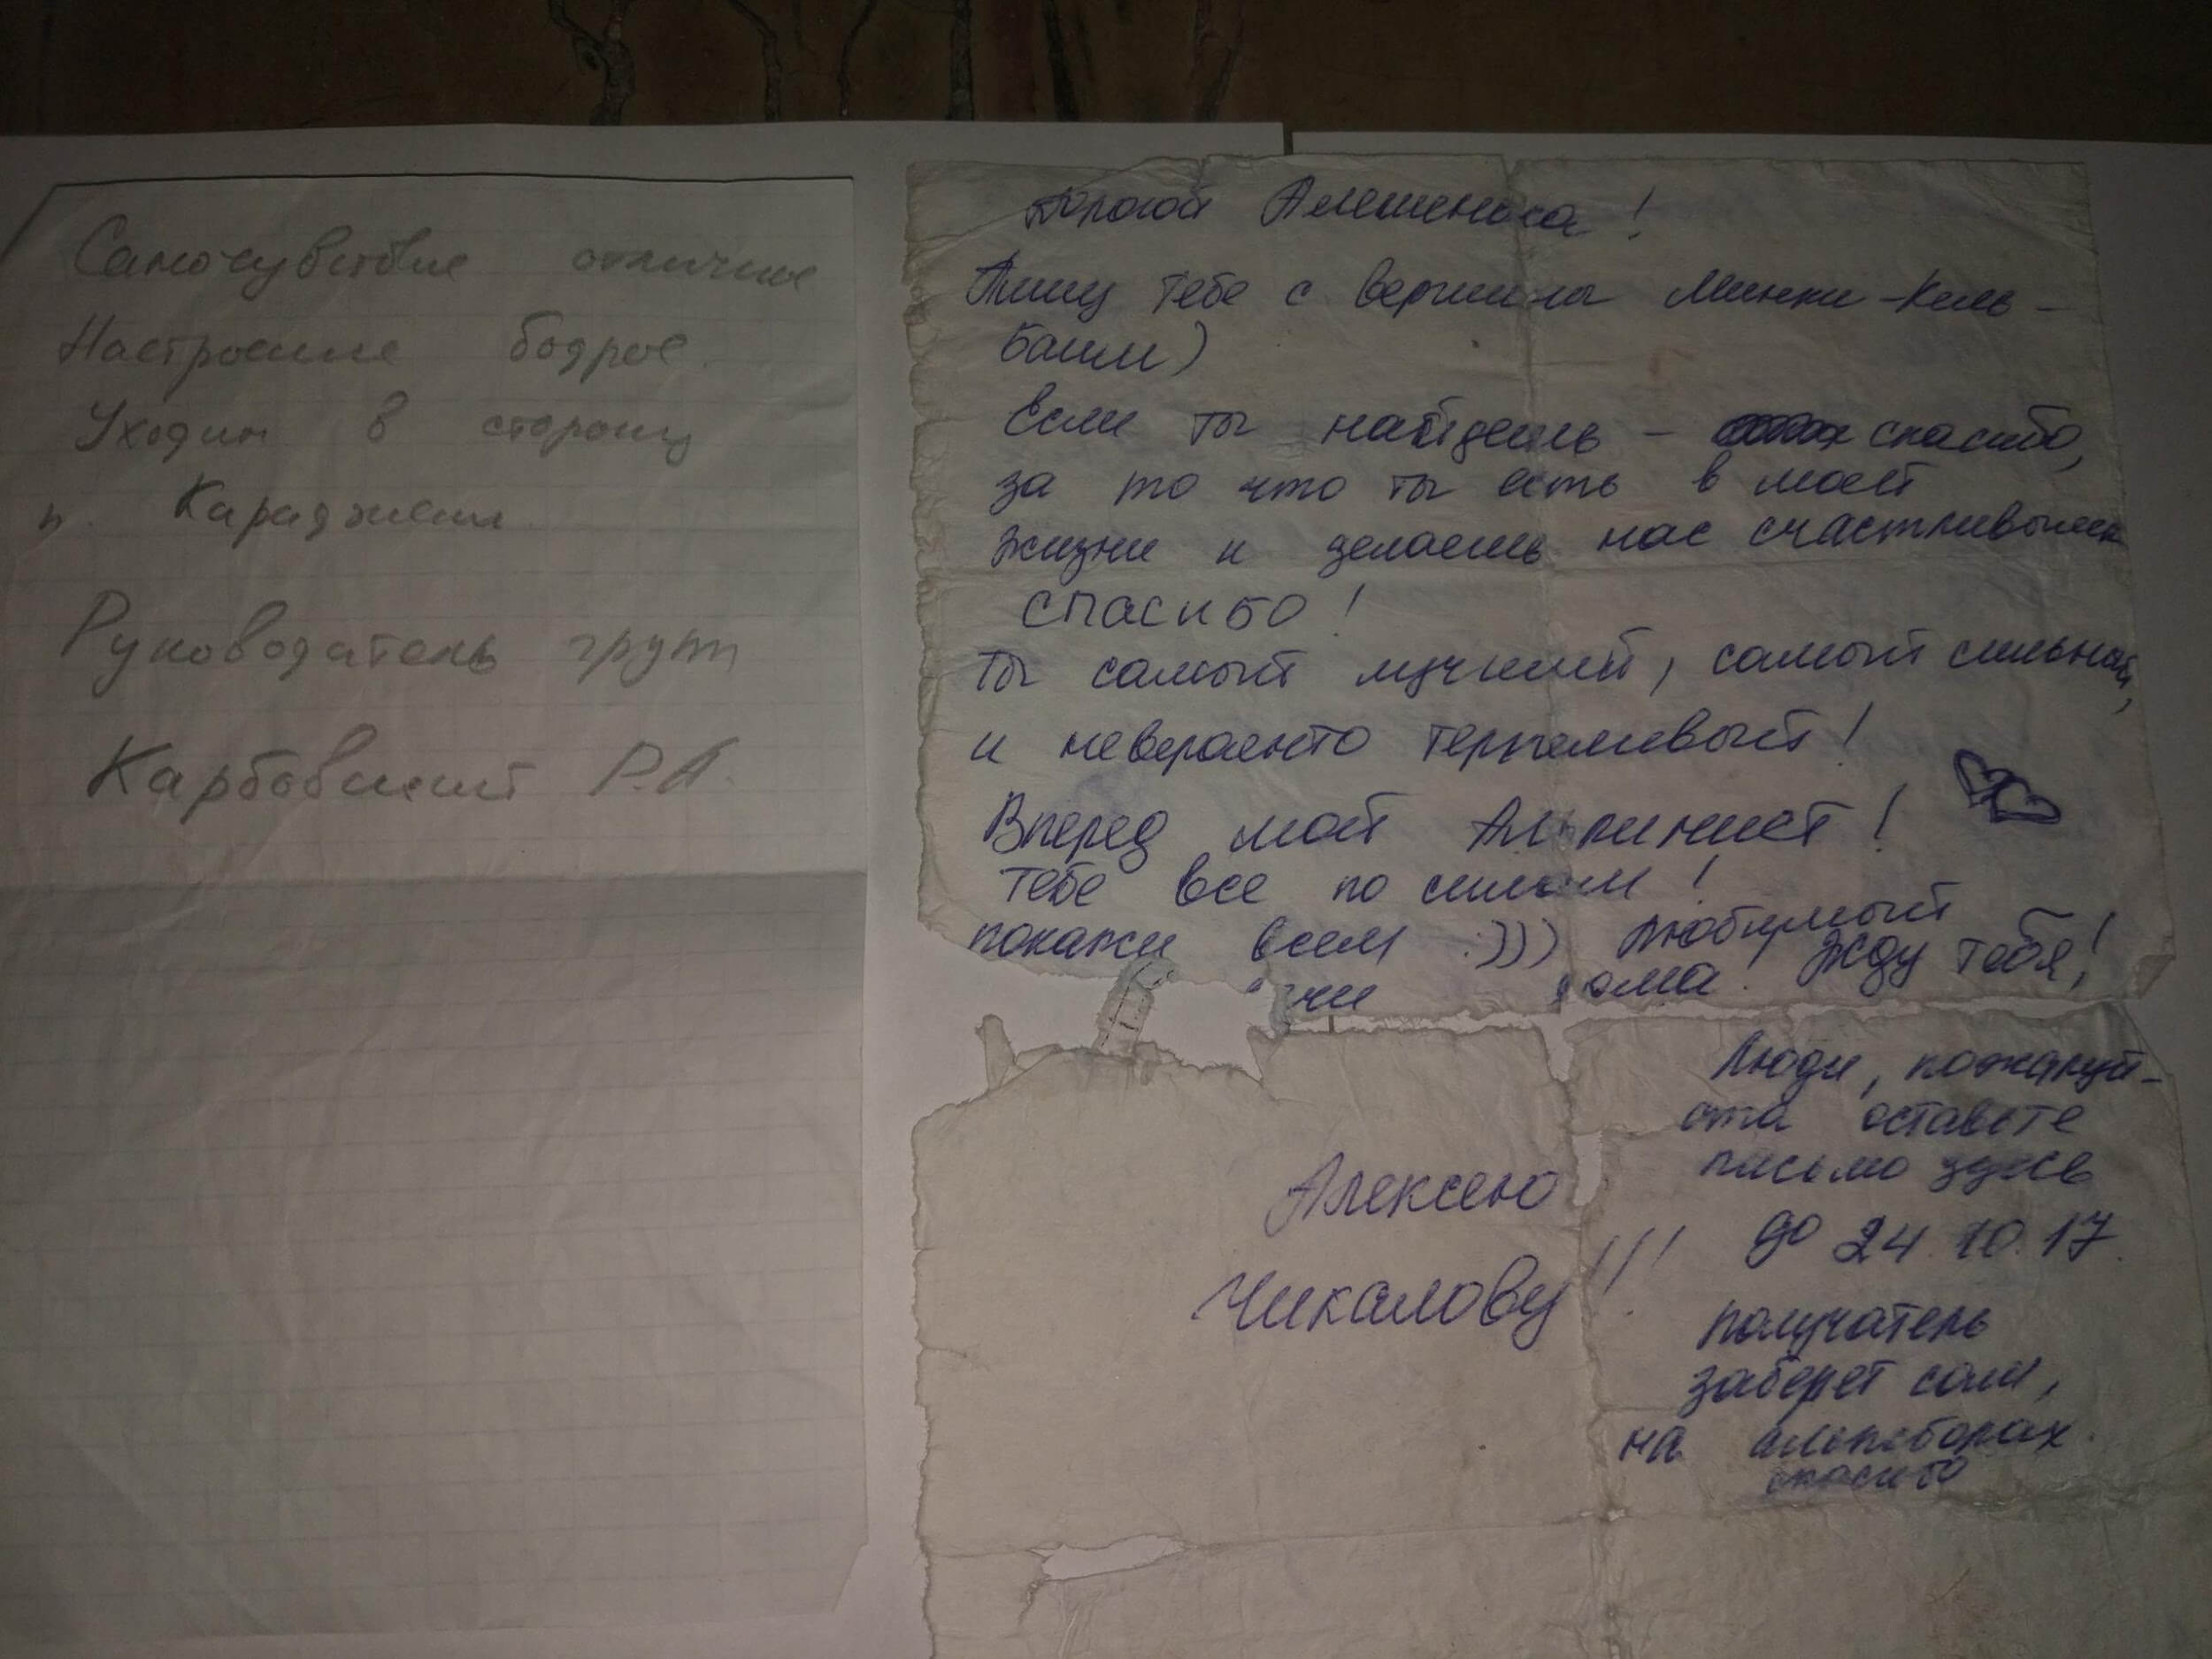 Самочувствие отличное
Настроение бодрое.
Уходим в сторону
п. Караджеш
Руководитель групп
Карбовский Р.А.
Дорогой Алешенька!
Пишу тебе с вершины Минги-Киль-
баши)
Если ты найдешь - спасибо,
за то что ты есть в моей
жизни и делаешь нас счастливыми
СПАСИБО!
Ты самый лучший, самый сильный,
и невероянто терпеливый!
Вперед мой Альпинист!
тебе все по силам!
покажи всем :))) Любимый
чи ома! Жду тебя!
Люди, пожалуй-
ста оставьте
письмо здесь
до 24.10.17.
получатель
заберет сам,
на альпсборах.
спасибо
Алексею
Чикалову!!!